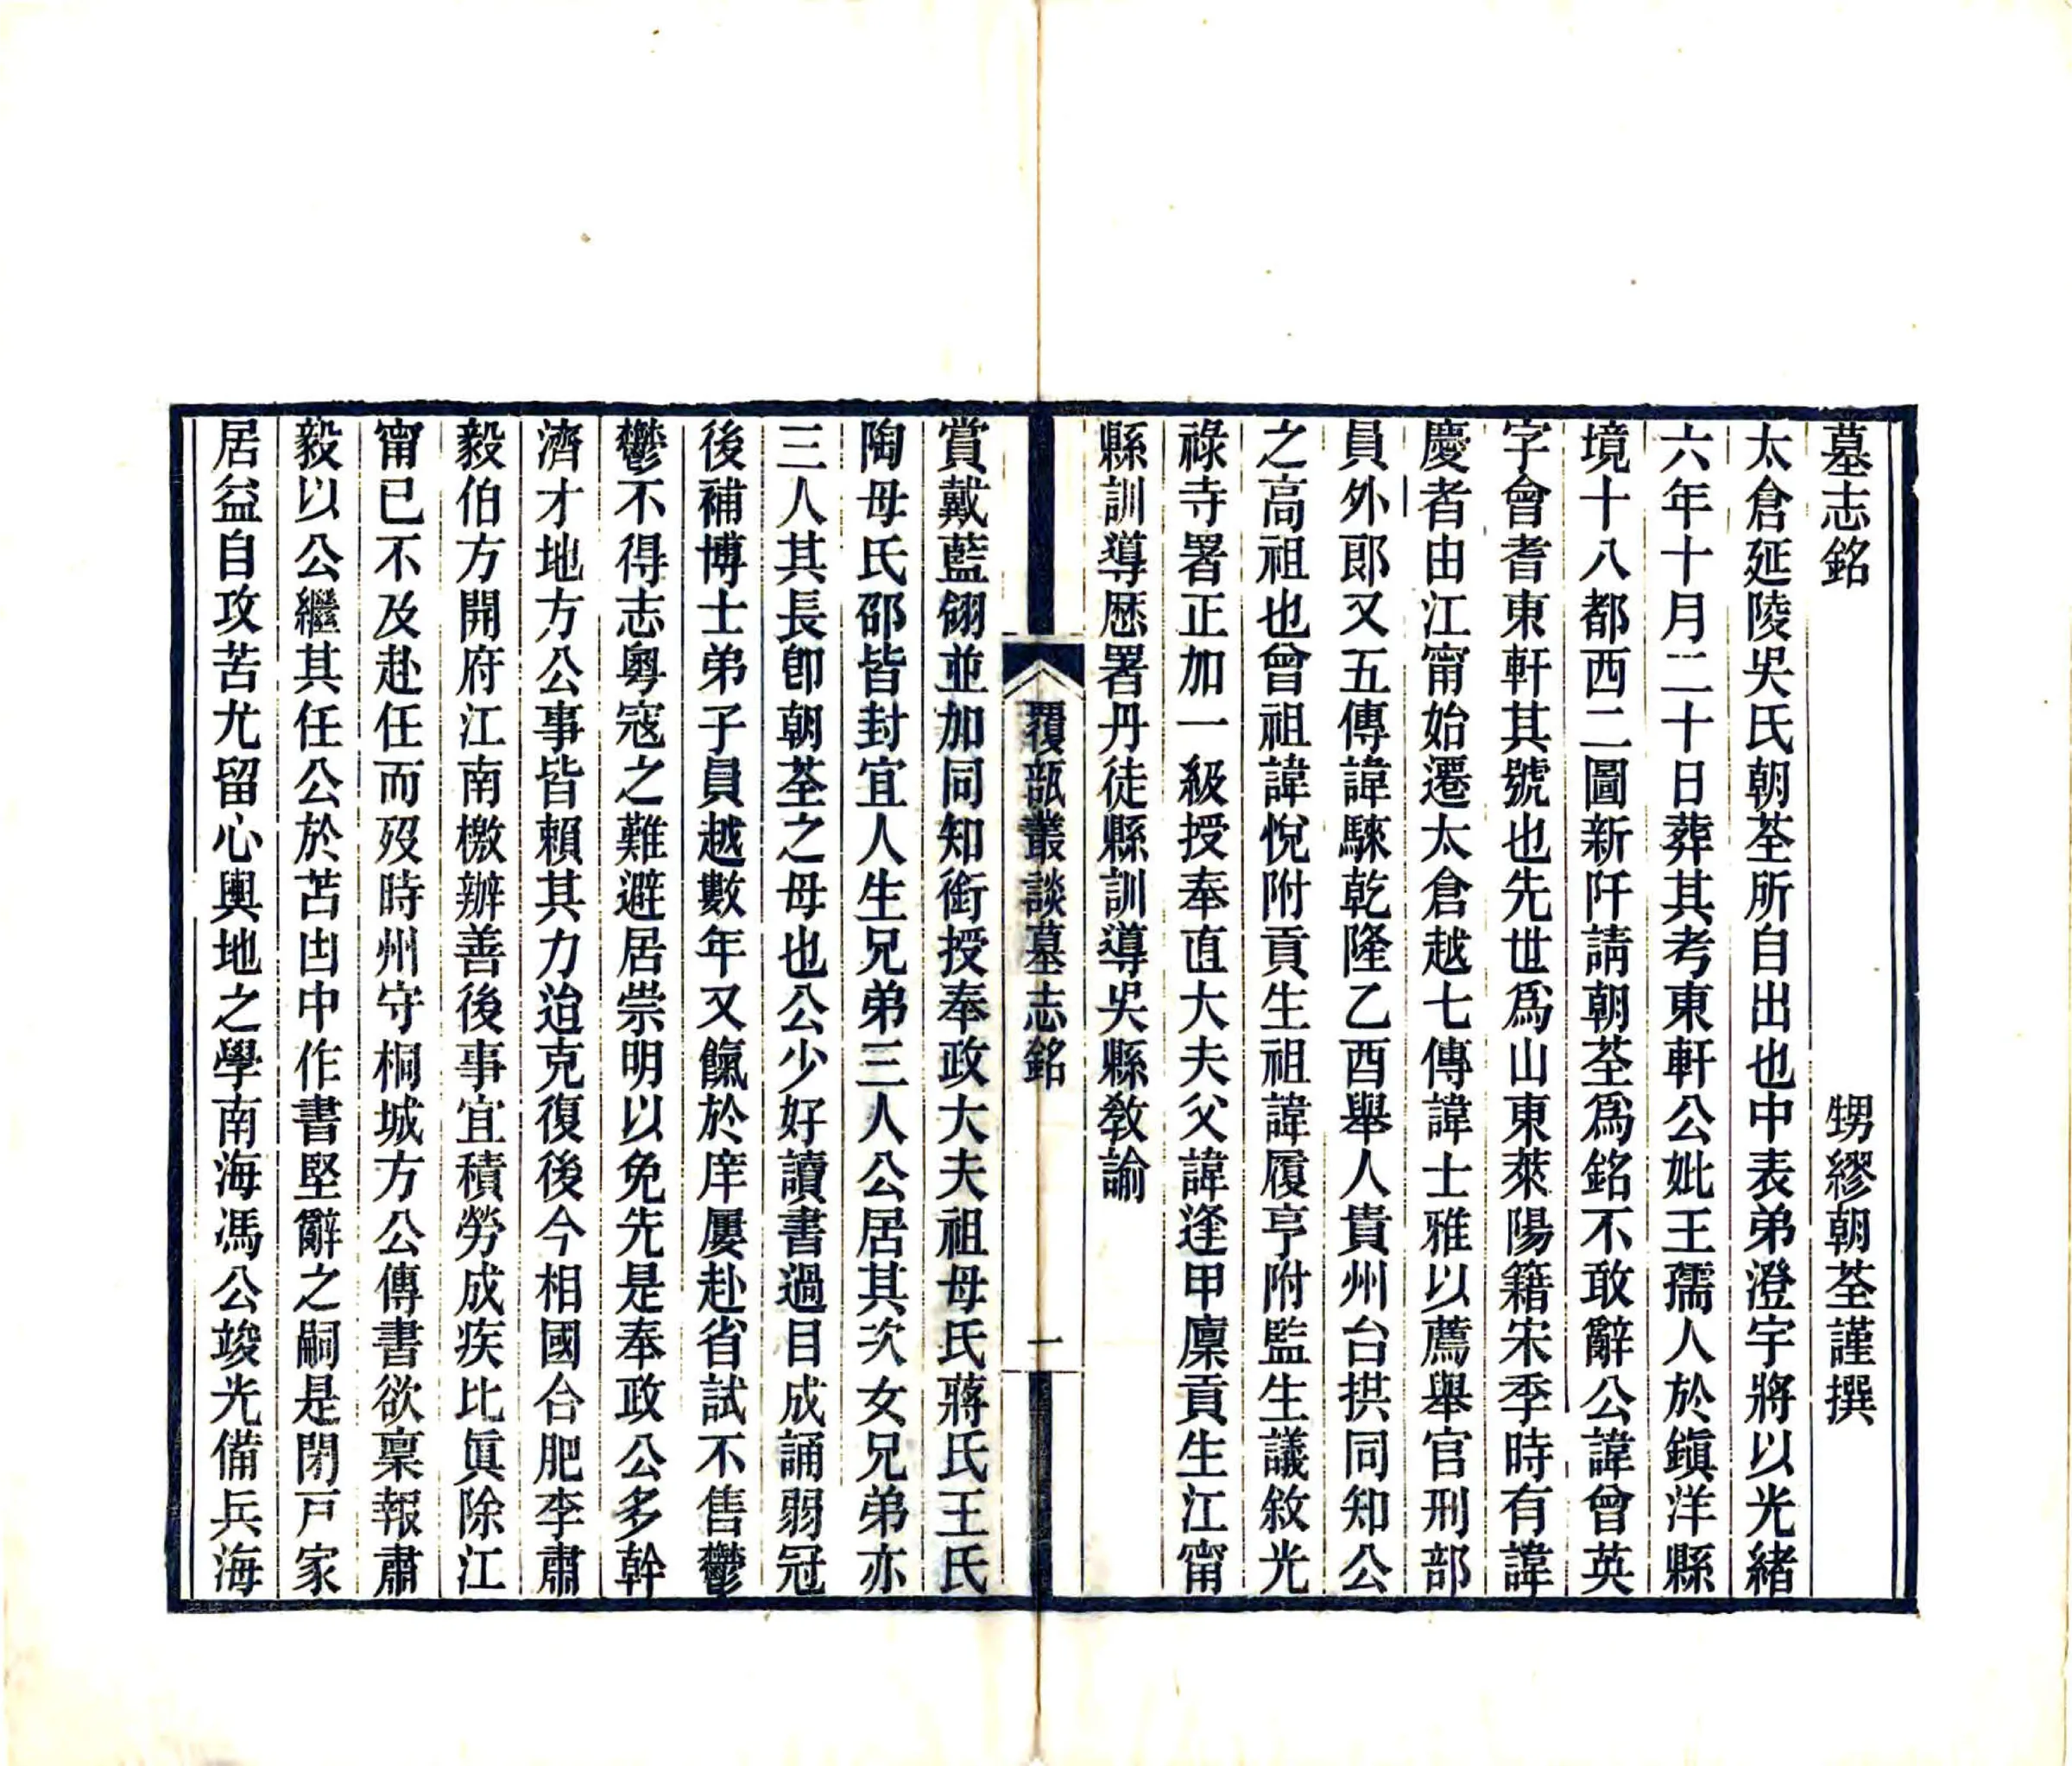 墓志銘
甥繆朝荃謹撰
太倉延陵吳氏朝荃所自出也中表弟澄宇將以光緒
六年十月二十日葬其考東軒公妣王孺人於鎭洋縣
境十八都西二圖新阡請朝荃爲銘不敢辭公諱曾英
字會耆東軒其號也先世爲山東萊陽籍宋季時有諱
慶者由江甯始遷太倉越七傳諱士雅以薦舉官刑部
員外郞又五傳諱騋乾隆乙酉舉人貴州台拱同知公
之高祖也曾祖諱悅附貢生祖諱履亨附監生議敘光
祿寺署正加一級授奉直大夫父諱逢甲廩貢生江甯
縣訓導歷署丹徒縣訓導吳縣敎諭
覆瓿叢談墓志銘 一
賞戴藍翎並加同知銜授奉政大夫祖母氏蔣氏王氏
陶母氏邵皆封宜人生兄弟三人公居其次女兄弟亦
三人其長卽朝荃之母也公少好讀書過目成誦弱冠
後補博士弟子員越數年又餼於庠屢赴省試不售鬱
鬱不得志粵寇之難避居崇明以免先是奉政公多幹
濟才地方公事皆賴其力迨克復後今相國合肥李肅
毅伯方開府江南檄辦善後事宜積勞成疾比眞除江
甯已不及赴任而歿時州守桐城方公傳書欲稟報肅
毅以公繼其任公於苫凷中作書堅辭之嗣是閉戸家
居益自攻苦尤留心輿地之學南海馮公竣光備兵海